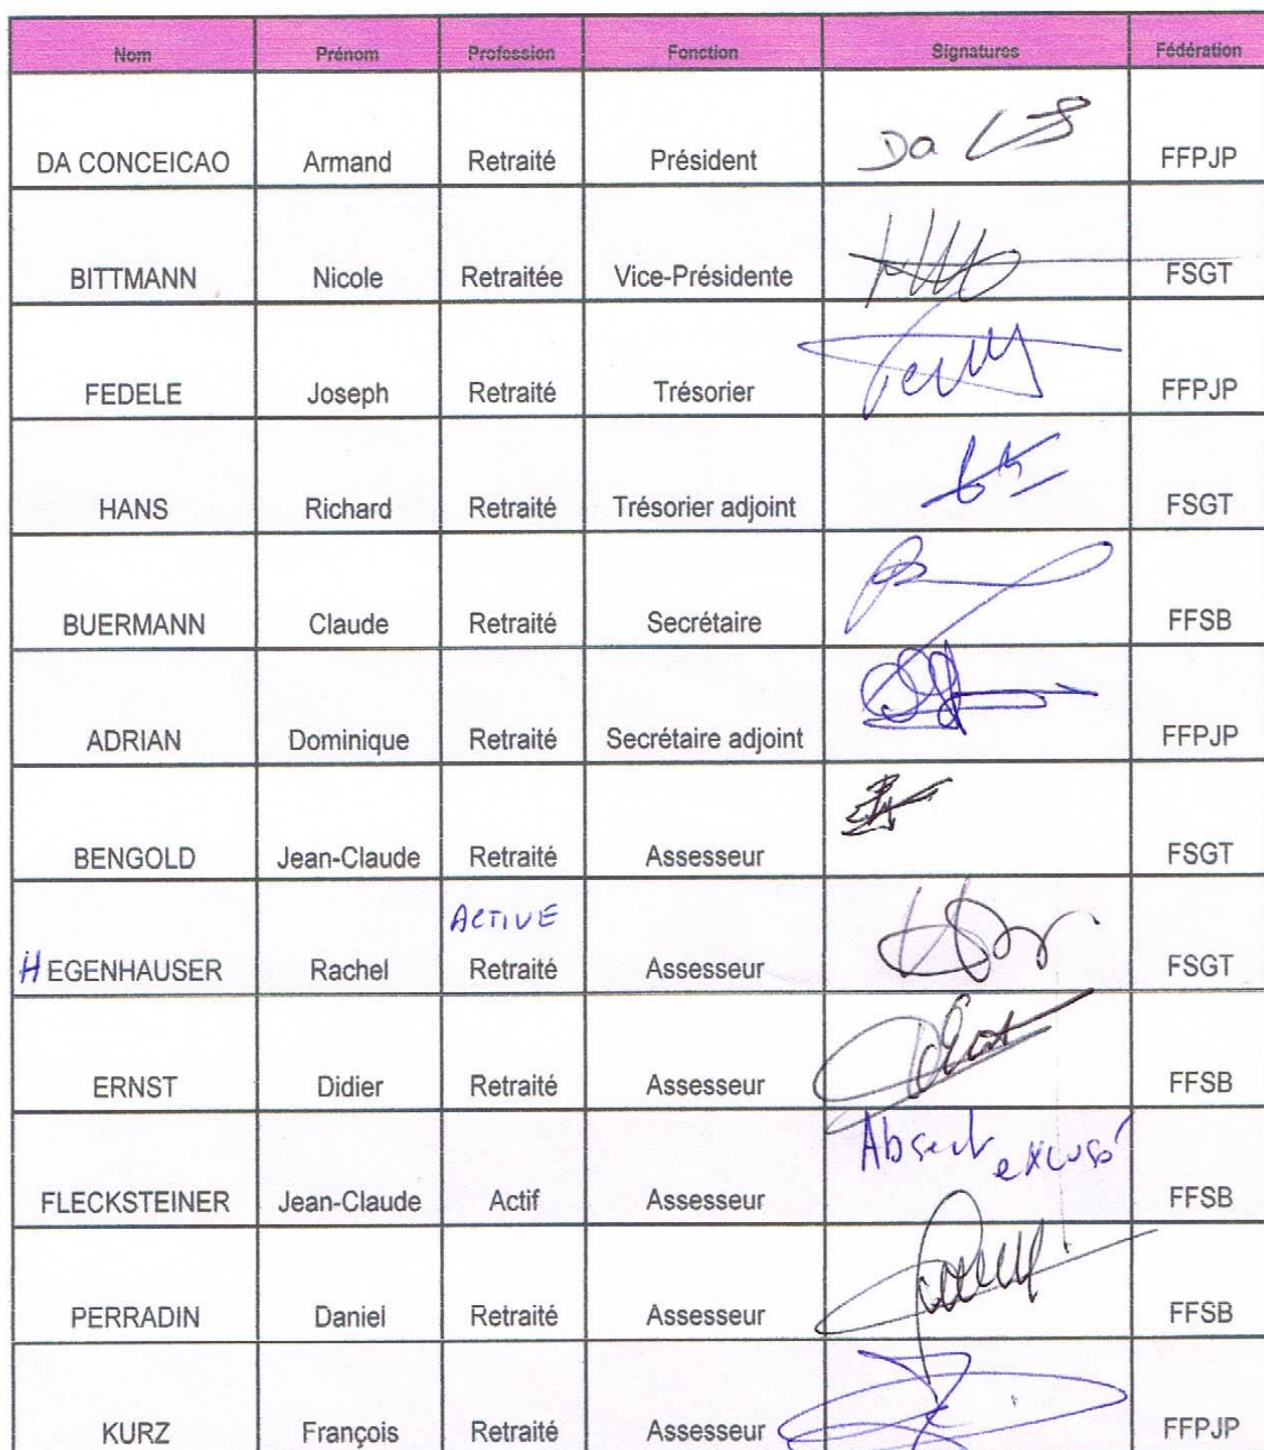 Nom Prénom Profession Fonction Signatures Fédération
DA CONCEICAO Armand Retraité Président Da FFPJP
BITTMANN Nicole Retraitée Vice-Présidente FSGT
FEDELE Joseph Retraité Trésorier FFPJP
HANS Richard Retraité Trésorier adjoint FSGT
BUERMANN Claude Retraité Secrétaire FFSB
ADRIAN Dominique Retraité Secrétaire adjoint FFPJP
BENGOLD Jean-Claude Retraité Assesseur FSGT
ACTIVE
HEGENHAUSER Rachel Retraité Assesseur FSGT
ERNST Didier Retraité Assesseur FFSB
Absent excusé
FLECKSTEINER Jean-Claude Actif Assesseur FFSB
PERRADIN Daniel Retraité Assesseur FFSB
KURZ François Retraité Assesseur FFPJP